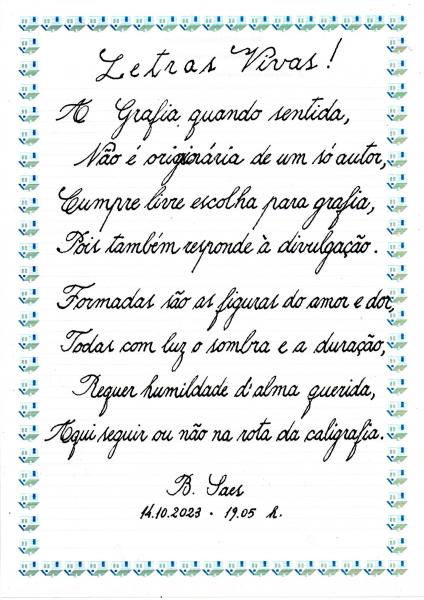 Letras Vivas!
A Grafia, quando sentida,
Não é originária de um só autor,
Cumpre livre escolha para grafia,
Pois também responde à divulgação.
Formadas são as figuras do amor e dor,
Todas com luz o sombra e a duração,
Requer humildade d'alma querida,
Aqui seguir ou não na rota da caligrafia.
B. Saes
14.10.2023 · 19.05 h.